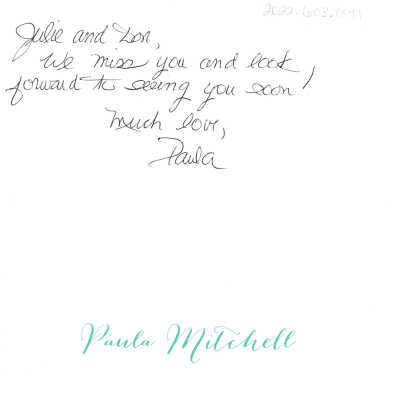 Julie and Don,
We miss you and look
forward to seeing you soon!
Much love,
Paula
Paula Mitchell